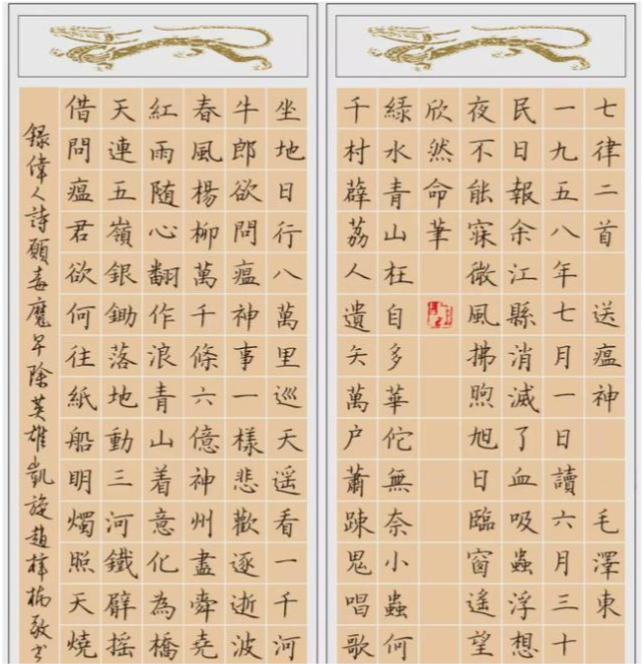 七律二首 送瘟神 毛澤東
一九五八年七月一日讀六月三十
民日報余江縣消滅了血吸蟲浮想
夜不能寐微風拂煦旭日臨窗遙望
欣然命筆
綠水青山枉自多華佗無奈小蟲何
千村薜荔人遺矢萬户蕭疎鬼唱歌
坐地日行八萬里巡天遥看一千河
牛郎欲問瘟神事一樣悲歡逐逝波
春風楊柳萬千條六億神州盡舜堯
紅雨随心翻作浪青山着意化為橋
天連五嶺銀鋤落地動三河鐵臂摇
借問瘟君欲何往紙船明燭照天燒
録偉人詩願毒魔早除英雄凱旋趙樟楠敬书